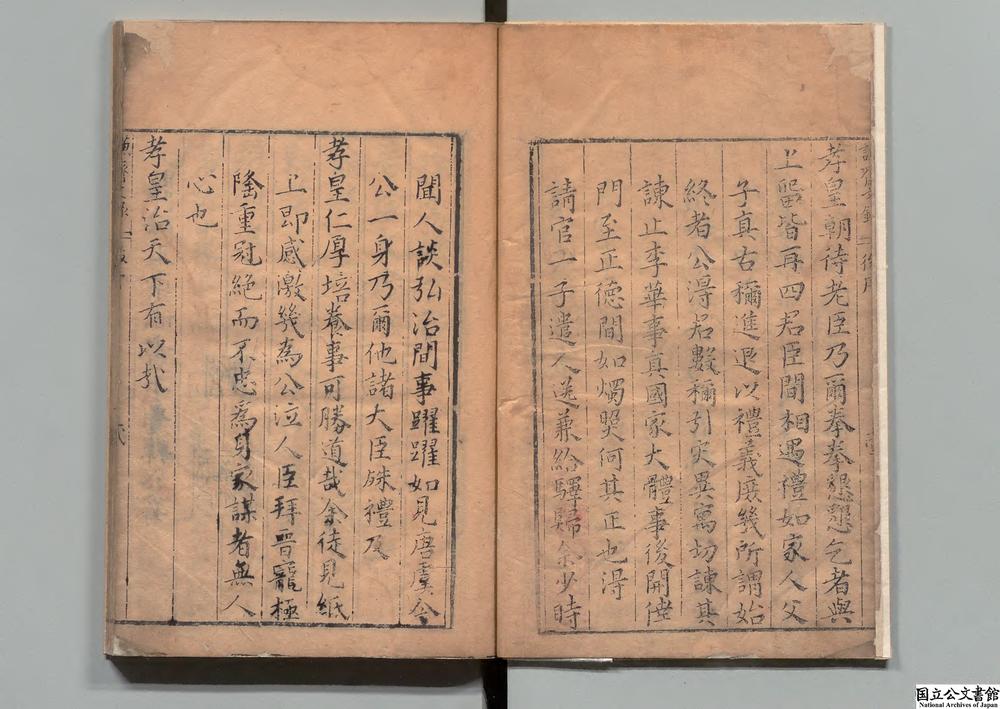 孝皇朝待老臣乃爾拳拳懇懇乞者與
上留皆再四君臣間相遇禮如家人父
子真古稱進退以禮義庶幾所謂始
終者公淂君數稱引灾異寓切諫其
諫止李華事真國家大體事後開倖
門至正德間如燭㷼何其正也淂
請官一子遣人送兼給驛歸余少時
聞人談弘治間事躍躍如見唐虞今
公一身乃爾他諸大臣殊禮及
孝皇仁厚培養事可勝道哉余徒見紙
上即感激幾為公泣人臣拜晋寵極
隆重冠絶而不忠為身家謀者無人
心也
孝皇治天下有以㢤
国立公文書館
National Archives of Japan